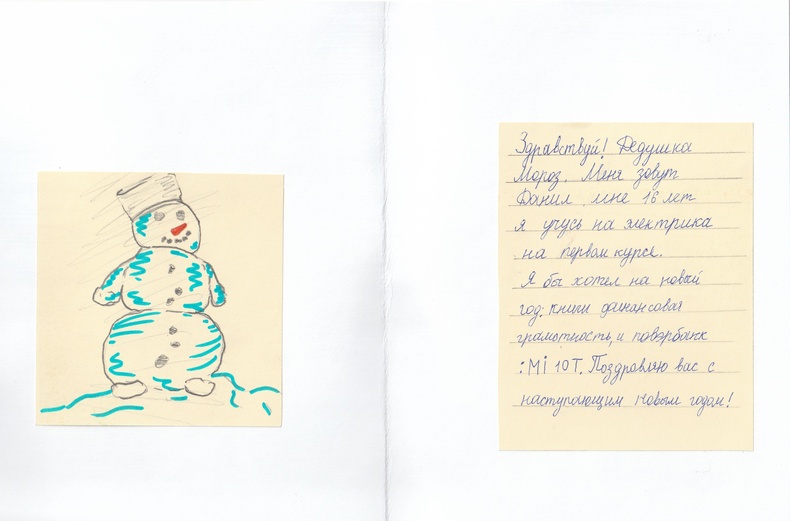 Здравствуй! Дедушка
Мороз. Меня зовут
Данил мне 16 лет
я учусь на электрика
на первом курсе.
Я бы хотел на новый
год: книги финансовая
грамотность, и повэрбанк
: Mi 10T. Поздровляю вас с
наступающим новым годом!